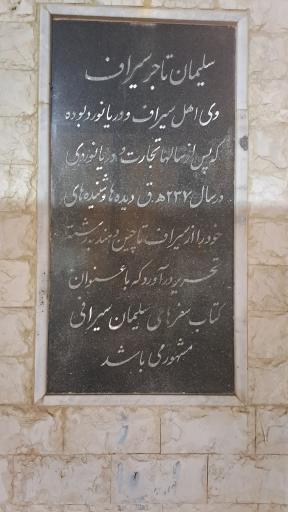 سلیمان تاجر سیراف
وی اهل سیراف و دریانورد بوده
که پس از سالها تجارت و دریانوردی
در سال ۲۳۷ ه.ق دیده ها و شنیده های
خود را از سیراف تا چین و هند به رشته
تحریر درآورد که با عنوان
کتاب سفرهای سلیمان سیرافی
مشهور می باشد